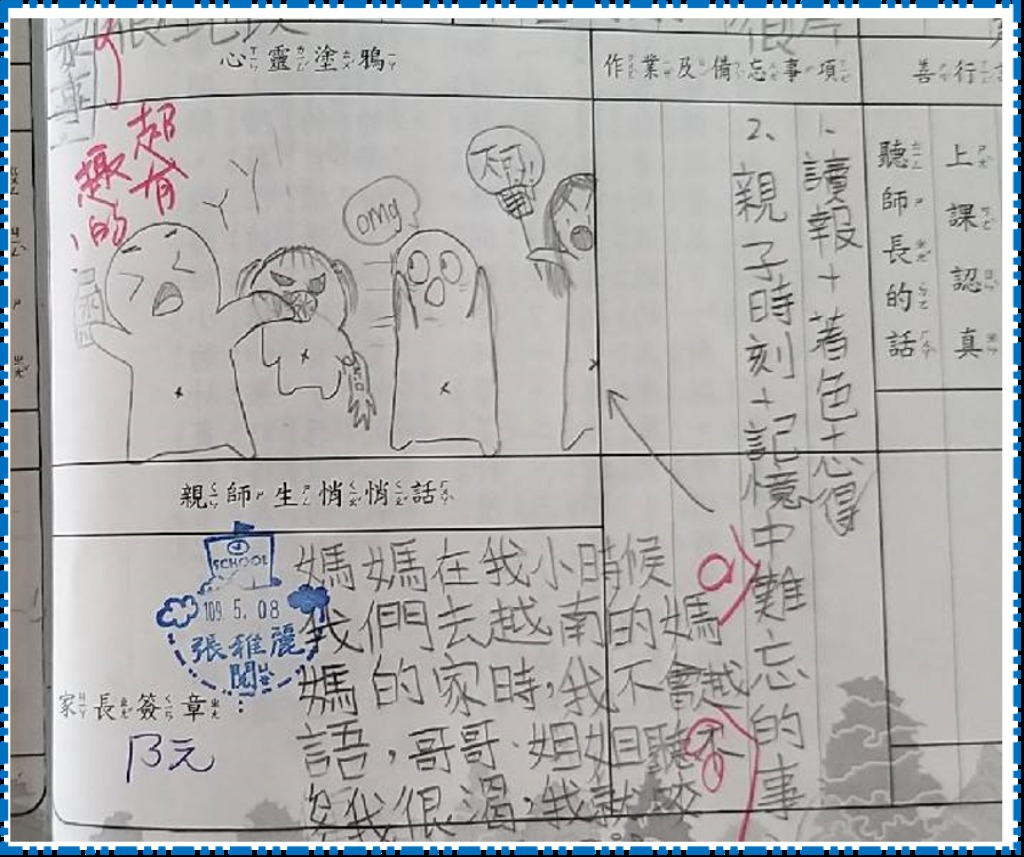 心靈塗鴉
超有
趣的
omg
不可!
作業及備忘事項
1、讀報+著色心得
2、親子時刻+記憶中難忘的事
善行
上課認真
聽師長的話
親師生悄悄話
SCHOOL
109. 5. 08
張雅麗
閱
家長簽章:
媽媽在我小時候
我們去越南的媽
媽的家時,我不會越
語,哥哥、姐姐聽不
我很渴,我就咬